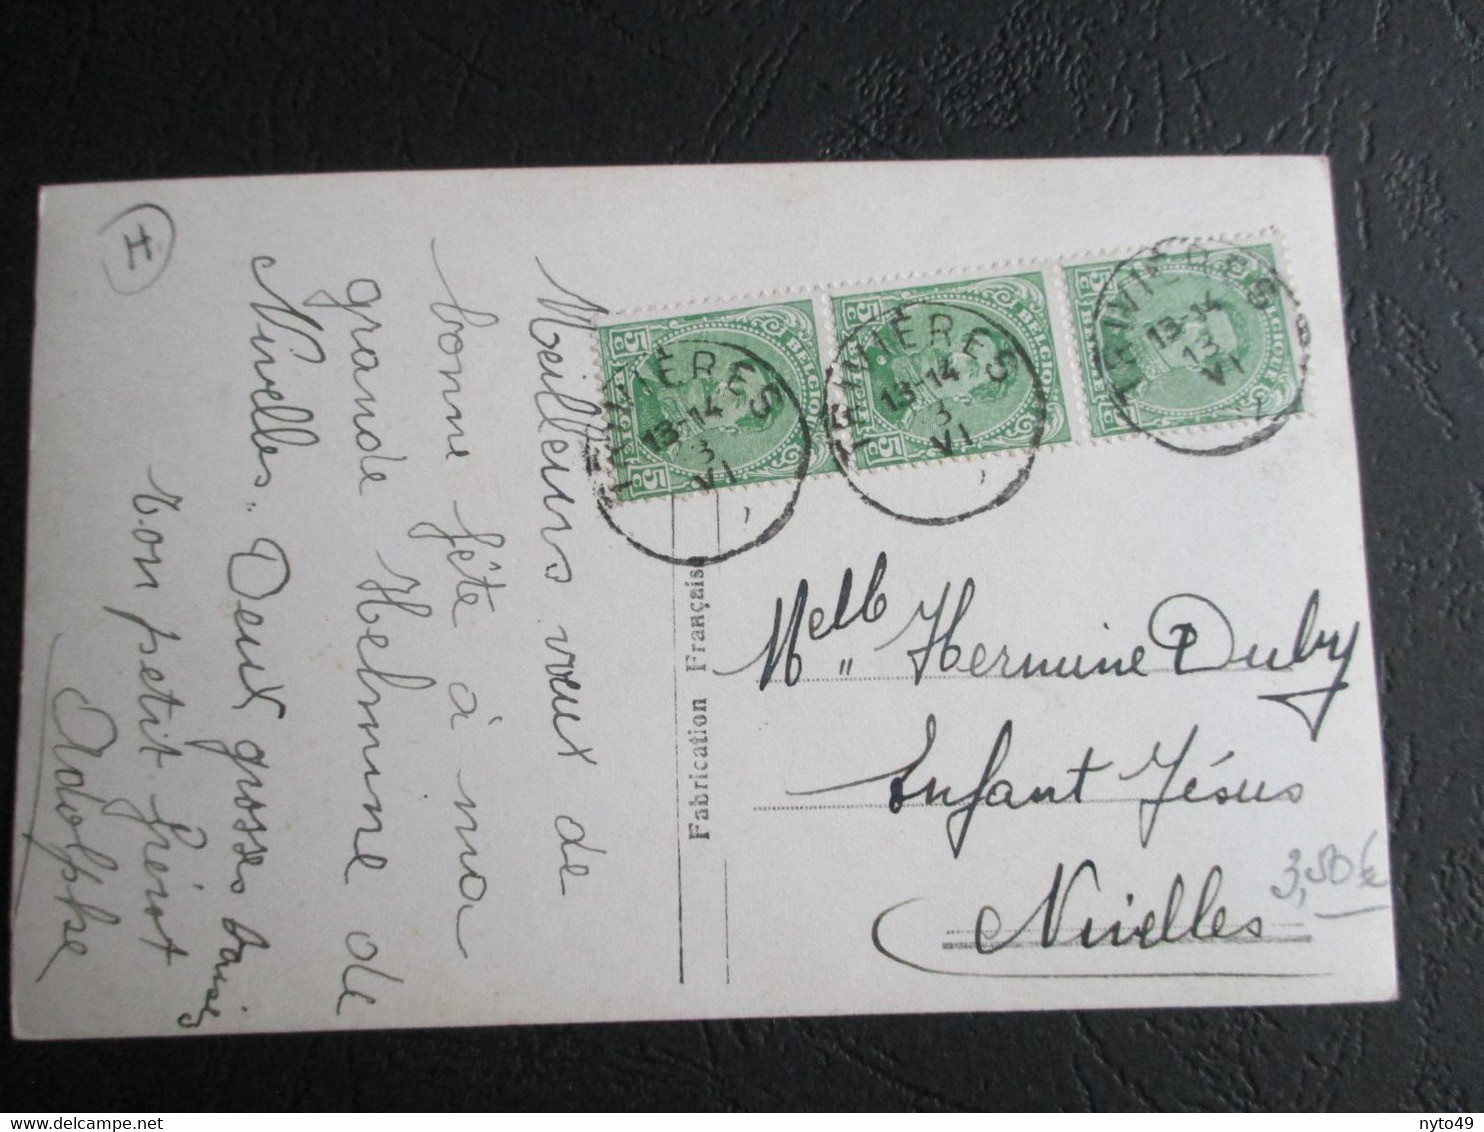 Meilleurs vœux de
bonne fête à ma
grande Helmine de
Nivelles. Deux grosses baises
Ton petit frérot
Adolphe
Fabrication Française
5 5 BELGIQUE
5 5 BELGIQUE
5 5 BELGIQUE
13-14
3
VI
13-14
3
VI
13-14
13
VI
Melle Hermine Duby
Enfant Jésus
Nivelles
3,50 €
nyto49